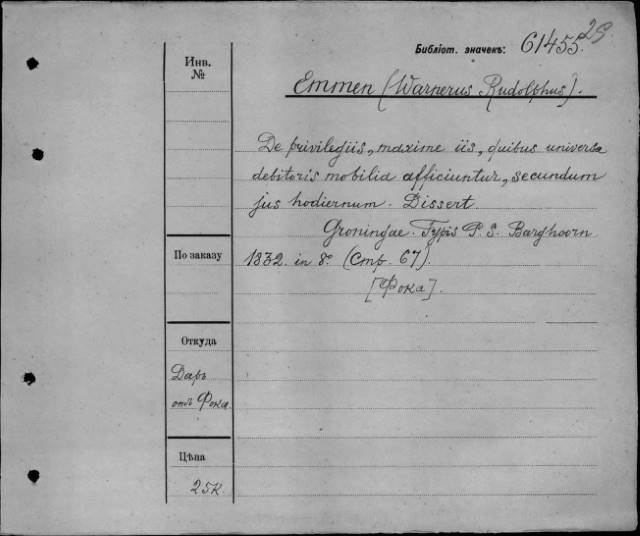 Библіот. значекъ: 61455
29
Инв.
№
Emmen (Warnerus Rudolphus).
De privilegiis, maxime iis, quibus universa
debitoris mobilia afficiuntur, secundum
jus hodiernum. Dissert.
Groningae. Typis P. S. Barghoorn
1832. in 8° (Стр. 67).
[Фока].
По заказу
Откуда
Даръ
отъ Фока
Цѣна
25к.